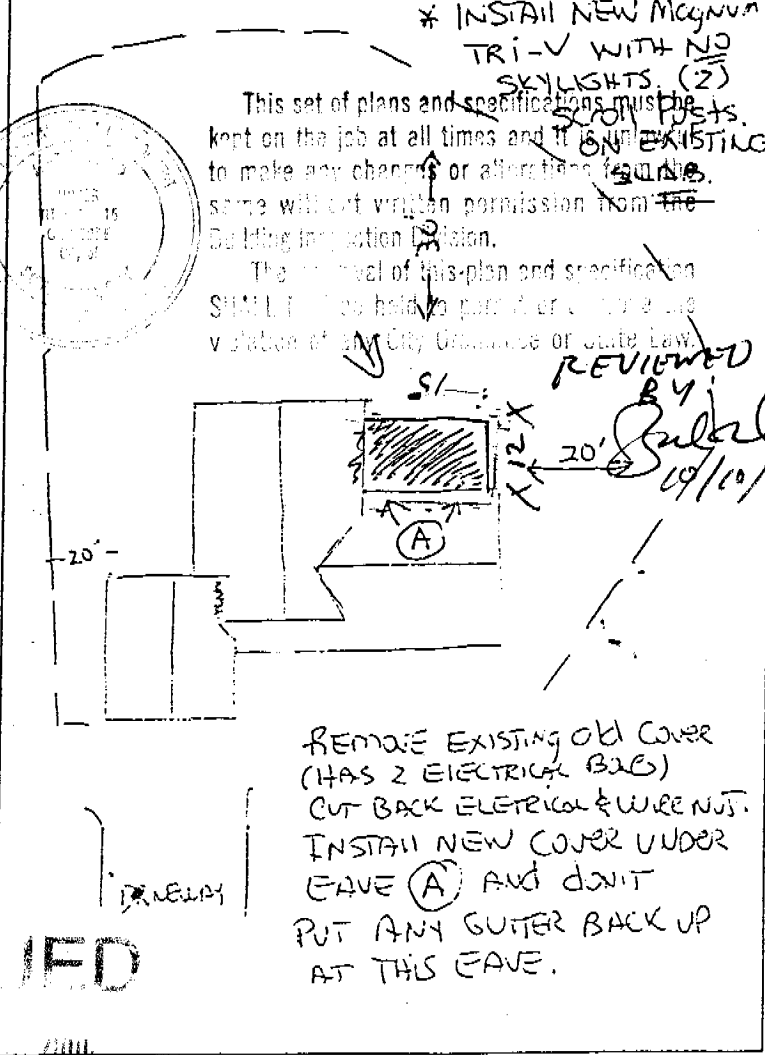 * INSTAll NEW MAGNUM
TRi-V WITH NO
SKYLIGHTS. (2)
SCROLL POSTS.
ON EXISTING
This set of plans and specifications must be
kept on the job at all times and it is unlawful
to make any changes or alterations from the
same without written permission from the
Building Inspection Division.
The approval of this plan and specification
SHALL NOT be held to permit or approve the
violation of any City Ordinance or State Law.
REVIEWED
BY:
10/10/
15
12
20'
A
20'
REMOVE EXISTING Old COVER
(HAS 2 ElECTRICAL
CUT BACK ELETRICAL & WIRE NUT.
INSTAll NEW COVER UNDER
EAVE (A) ANd dON'T
PUT ANY GUTTER BACK UP
AT THIS EAVE.
DRIVEWAY
UED